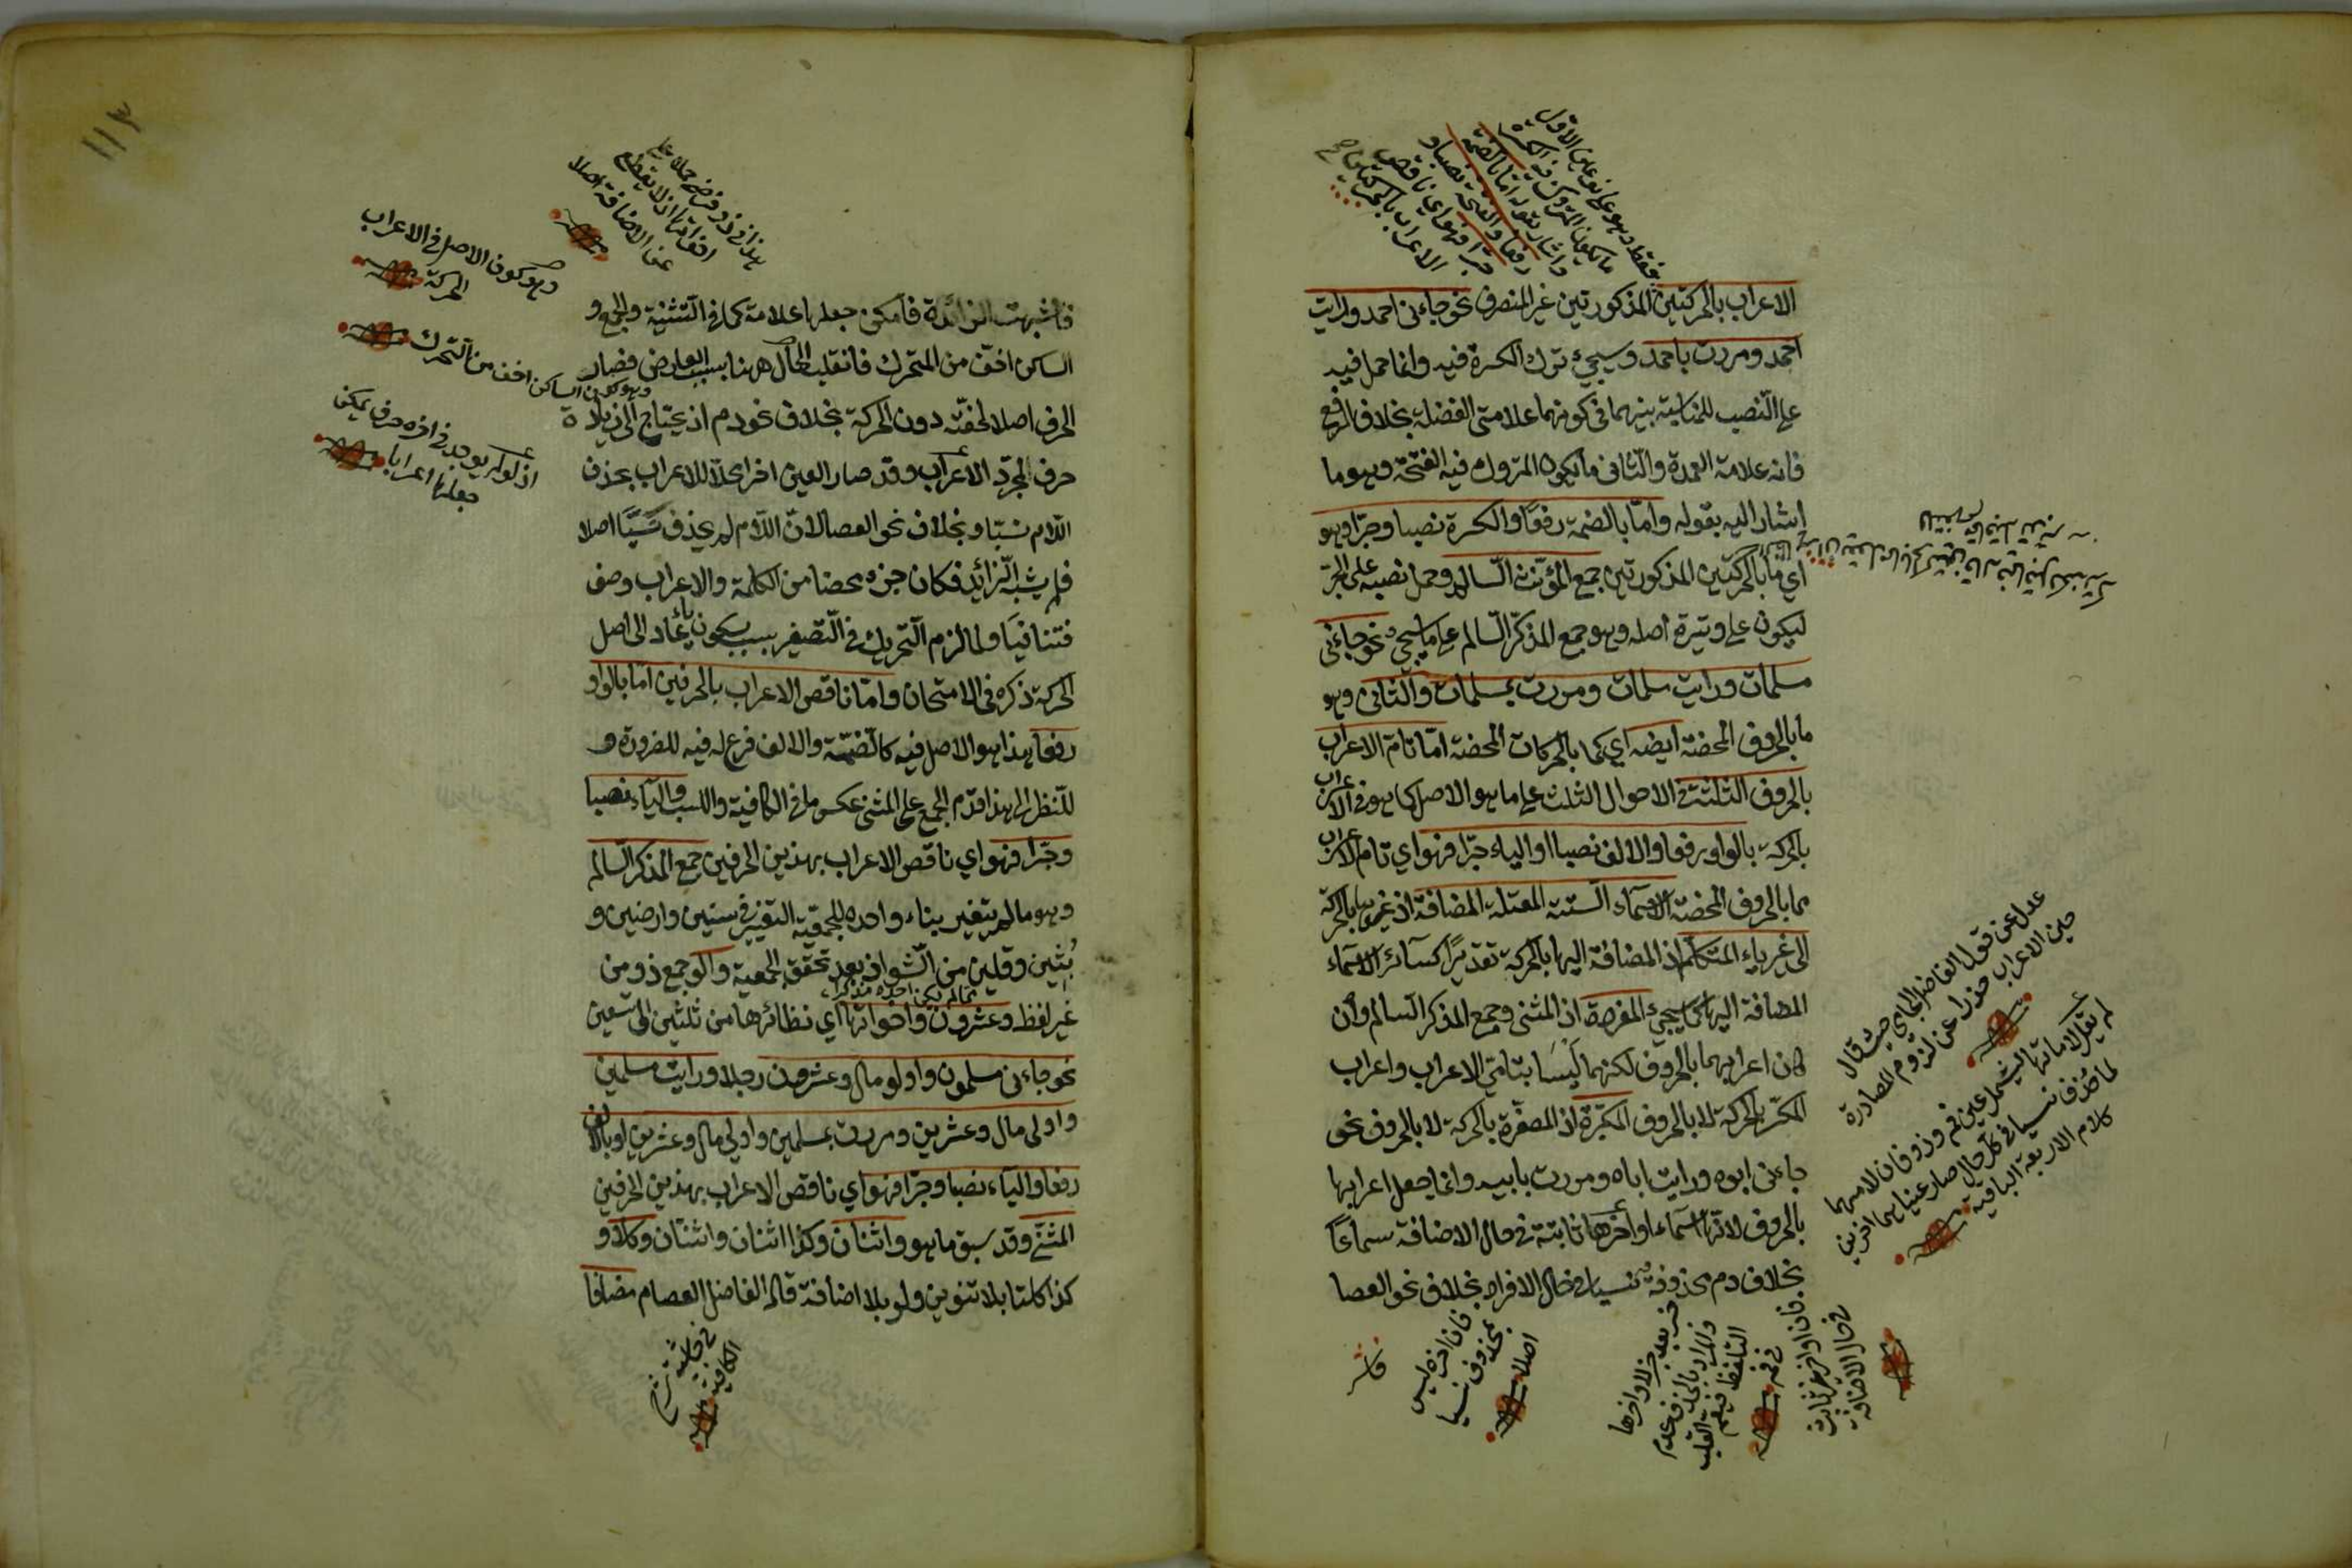 الاعراب بالحركتين المذكورتين غير المنصرف نحو جاءنى احمد ورايت
احمد ومررت باحمد وسيجئ ترك الكسرة فيه وانما حمل فيه
على النصب للمناسبة بينهما فى كونهما علامتى الفضلة بخلاف الرفع
فانه علامة العمدة والثانى ما يكون المتروك فيه الفتحة وهو ما
اشار اليه بقوله واما بالضمة رفعا والكسرة نصبا وجرا وهو
اي ما بالحركتين المذكورتين جمع المؤنث السالم وحمل نصبه على الجر
ليكون على وتيرة اصله وهو جمع المذكر السالم على ما سيجئ نحو جاءنى
مسلمات ورايت مسلمات ومررت بمسلمات والثانى وهو
ما بالحروف المحضة ايضه اي كما بالحركات المحضة اما تام الاعراب
بالحروف الثلثة فى الاحوال الثلث على ما هو الاصل كما هو فى الاعراب
بالحركة بالواو رفعا والالف نصبا والياء جرا فهو اي تام الاعراب
مما بالحروف المحضة الاسماء الستة المعتلة المضافة اذ غيرها بالحركة
الى غير ياء المتكلم اذ المضافة اليها بالحركة تقديرا كسائر الاسماء
المضافة اليها كما سيجئ المفردة اذ المثنى وجمع المذكر السالم وان
كان اعرابهما بالحروف لكنهما ليسا بتامى الاعراب واعراب
المكسر بالحركة لا بالحروف المكبرة اذ المصغرة بالحركة لا بالحروف نحو
جاءنى ابوه ورايت اباه ومررت بابيه وانما جعل اعرابها
بالحروف لانها اسماء اواخرها ثابتة فى حال الاضافة سماعا
بخلاف دم محذوفة نسيا فى حال الافراد بخلاف نحو العصا
فقط وهو على نوعين الاول
ما يكون المتروك فيه الكسرة
واشار بقوله اما بالضمة
رفعا والفتحة نصبا و
جرا فهو اي ناقص
الاعراب بالحركتين
عدل عن قول الفاضل الجامي حيث قال
حين الاعراب حذرا عن لزوم المصادرة
لما حذف نسيا فى كل حال صار عينا هما اخرين
كلام الاربعة الباقية
فان اواخر غير ثابتة
فى حال الاضافة
فان اخره ليس
بمحذوف نسيا
اصلا
فاشبهت الزائدة فامكن جعلها علامة كما فى التثنية والجمع و
الساكن اخف من المتحرك فانقلب الحال ههنا بسبب العارض فصار
الحرف اصلا لخفته دون الحركة بخلاف نحو دم اذ يحتاج الى زيادة
حرف لمجرد الاعراب وقد صار العين اخرا محلا للاعراب بحذف
اللام نسيا وبخلاف نحو العصا لان اللام لم يحذف نسيا اصلا
فلم يشبه الزائد فكان جزء محضا من الكلمة والاعراب وصف
فتنافيا ولما لزم التحريك فى التصغير بسبب سكون يائه عاد الى اصل
الحركة ذكره فى الامتحان واما ناقص الاعراب بالحرفين اما بالواو
رفعا هذا هو الاصل فيه كالضمة والالف فرع له فيه للضرورة و
للنظر الى هذا قدم الجمع على المثنى عكس ما فى الكافية واللب والياء نصبا
وجرا فهو اي ناقص الاعراب بهذين الحرفين جمع المذكر السالم
وهو ما لم يتغير بناء واحده للجمعية التغير فى سنين وارضين و
ثبين وقلين من الشواذ بعد تحقق الجمعية واولو جمع ذو من
غير لفظه وعشرون واخواتها اي نظائرها من ثلثين الى تسعين
نحو جاءنى مسلمون واولو مال وعشرون رجلا ورايت مسلمين
واولى مال وعشرين ومررت بمسلمين واولي مال وعشرين او بالالف
رفعا والياء نصبا وجرا فهو اي ناقص الاعراب بهذين الحرفين
المثنى وقد سبق ما هو واثنان وكذا اثنتان وثنتان وكلا و
كذا كلتا بلا تنوين ولو بلا اضافة قاله الفاضل العصام مضافا
عن الاضافة اصلا
وهو كون الاصل فى الاعراب
الحركة
وهو كون الساكن اخف من المتحرك
اذ لم يوجد فى اخره حرف يمكن
جعلها اعرابا
فى حاشية شرح
الكافية
١١٣